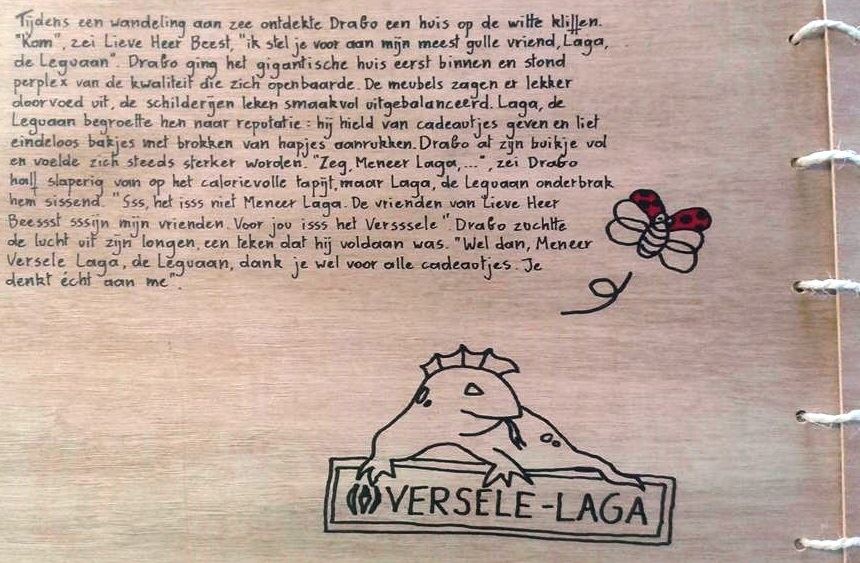 Tijdens een wandeling aan zee ontdekte Drabo een huis op de witte kliffen.
"Kom", zei Lieve Heer Beest, "ik stel je voor aan mijn meest gulle vriend, Laga,
de Leguaan". Drabo ging het gigantische huis eerst binnen en stond
perplex van de kwaliteit die zich openbaarde. De meubels zagen er lekker
doorvoed uit, de schilderijen leken smaakvol uitgebalanceerd. Laga, de
Leguaan begroette hen naar reputatie: hij hield van cadeautjes geven en liet
eindeloos bakjes met brokken van hapjes aanrukken. Drabo at zijn buikje vol
en voelde zich steeds sterker worden. "Zeg, Meneer Laga,...", zei Drabo
half slaperig van op het calorievolle tapijt, maar Laga, de Leguaan onderbrak
hem sissend. "Sss, het isss niet Meneer Laga. De vrienden van Lieve Heer
Beessst sssijn mijn vrienden. Voor jou isss het Versssele". Drabo zuchtte
de lucht uit zijn longen, een teken dat hij voldaan was. "Wel dan, Meneer
Versele Laga, de Leguaan, dank je wel voor alle cadeautjes. Je
denkt écht aan me".
VERSELE-LAGA